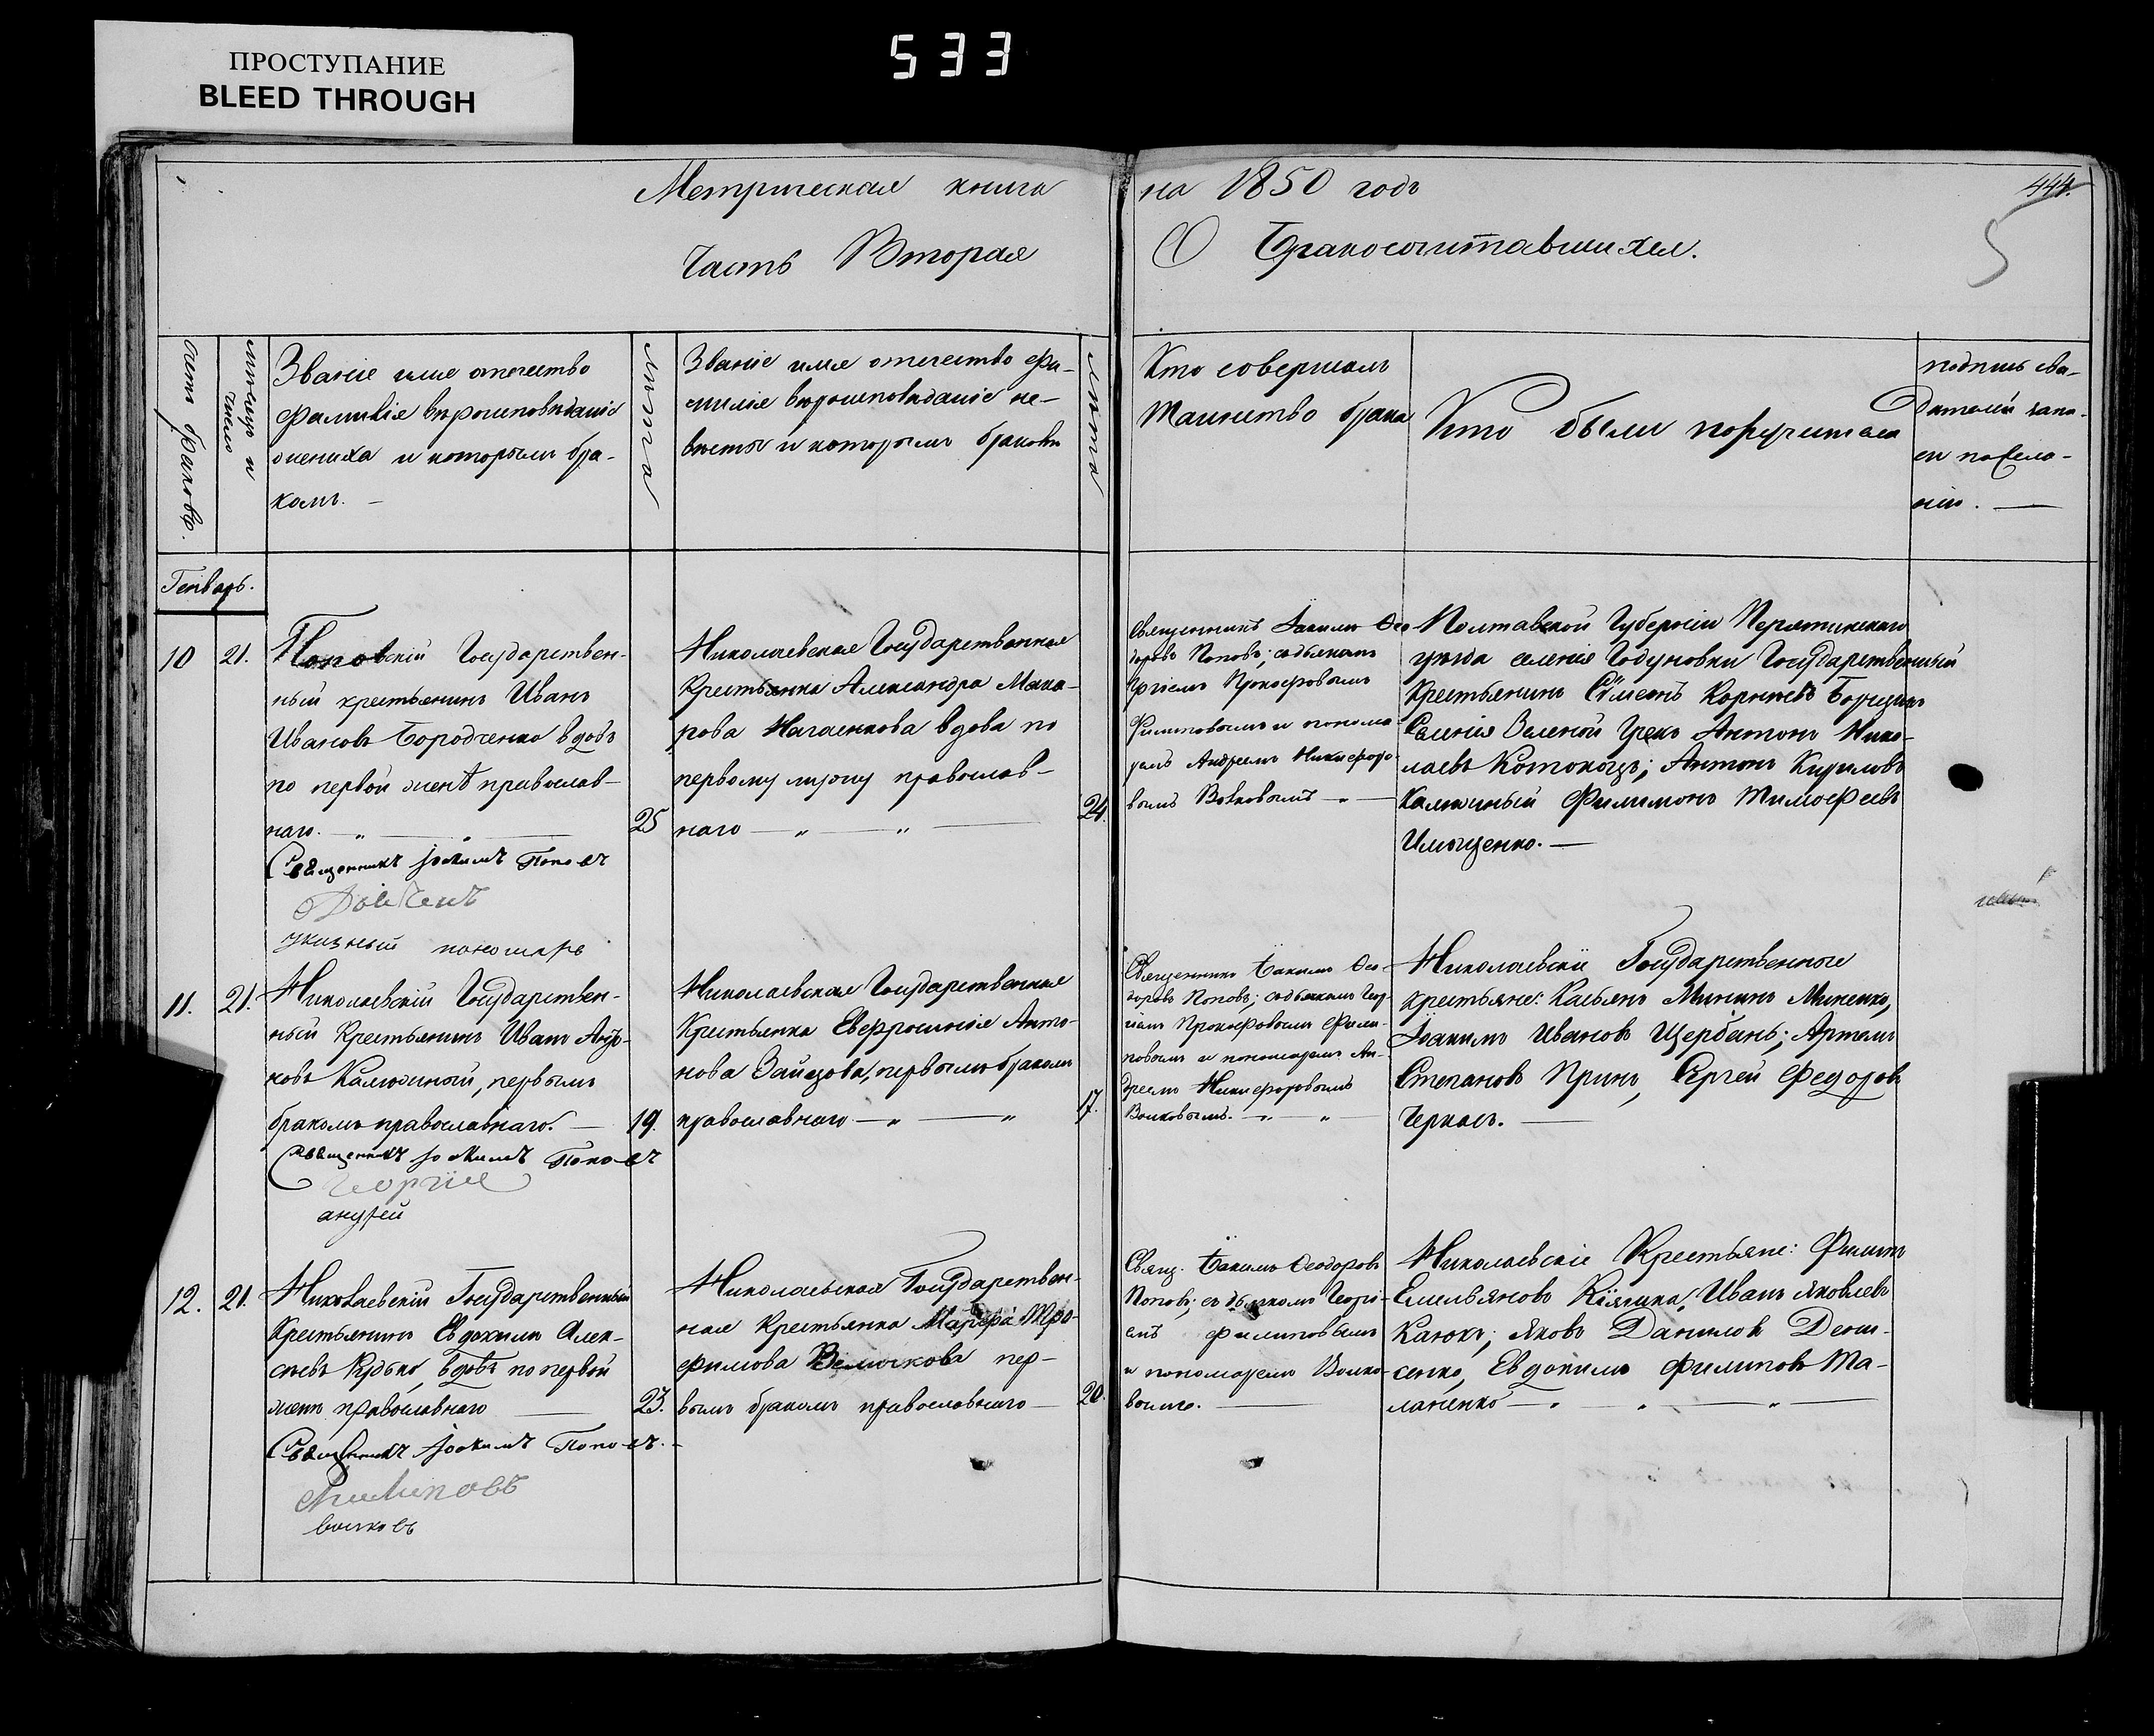 ПРОСТУПАНИЕ
BLEED THROUGH
533
Метрическая книга на 1850 годъ
444.
Часть Вторая О Бракосочитавшихся.
5
счетъ браковъ.
мѣсяцъ и число
Званіе имя отечество
фамилія вѣроисповѣданіе
жениха и которымъ бра-
комъ. —
лѣта
Званіе имя отечество фа-
милія вѣроисповѣданіе не-
вѣсты и которымъ бракомъ
лѣта
Кто совершалъ
таинство брака
Кто были поручители
подпись сви-
дѣтелей запи-
си по жела-
нію. —
Генварь.
10
21.
Государствен-
ный крестьянинъ Иванъ
Ивановъ Бородченко вдовъ
по первой женѣ православ-
наго. — „ —
25
Священникъ Іоакимъ Поповъ
указный пономарь
Николаевская Государственная
Крестьянка Александра Мака-
рова Нагаенкова вдова по
первому мужу православ-
наго — „ — „ —
24.
Священникъ Іакимъ Ѳео-
доровъ Поповъ; съ дьякомъ
Прокофовымъ
Филиповымъ и понома-
ремъ Андреемъ Никифоро-
вымъ Волковымъ — „ —
Полтавской Губерніи Пирятинскаго
уѣзда селенія Годуновки Государственный
Крестьянинъ Борщъ
Селенія Зеленой Антонъ Нико-
лаевъ Антонъ Кириловъ
Калюжный Филимонъ Тимофеевъ
Имощенко. —
11.
21.
Николаевскій Государствен-
ный Крестьянинъ Иванъ
Калюжный, первымъ
бракомъ православнаго. —
19.
Священникъ Іоакимъ Поповъ
Георгіе
андрей
Николаевская Государственная
Крестьянка Евфросинія Анто-
нова Зайцова, первымъ бракомъ
православнаго — „ — „
17.
Священникъ Іакимъ Ѳео-
доровъ Поповъ; съ дьякомъ Геор-
гіемъ Прокофовымъ Фили-
повымъ и пономаремъ Ан-
дреемъ Никифоровымъ
Волковымъ. — „ — „
Николаевскіе Государственные
крестьяне: Касьянъ Мининъ Миненко,
Іоакимъ Ивановъ Щербань; Артемъ
Степановъ Принь, Сергей Федоровъ
Черкасъ. —
12.
21.
Николаевскій Государственный
Крестьянинъ Евдокимъ Алек-
сѣевъ вдовъ по первой
женѣ православнаго —
23.
Священникъ Іоакимъ Поповъ. -
Филиповъ
волковъ
Николаевская Государствен-
ная Крестьянка Марфа Тро-
фимова Величкова пер-
вымъ бракомъ православнаго —
20.
Свящ. Іакимъ Ѳеодоровъ
Поповъ; съ дьякомъ Георгі-
емъ Филиповымъ
и пономаремъ Волко-
вымъ. —
Николаевскіе Крестьяне: Филипъ
Емельяновъ Кіяшка, Иванъ Яковлевъ
Канюкъ; Яковъ Даниловъ Дени-
сенко, Евдокимъ Филиповъ Ма-
ланенко — „ — „ — „ —